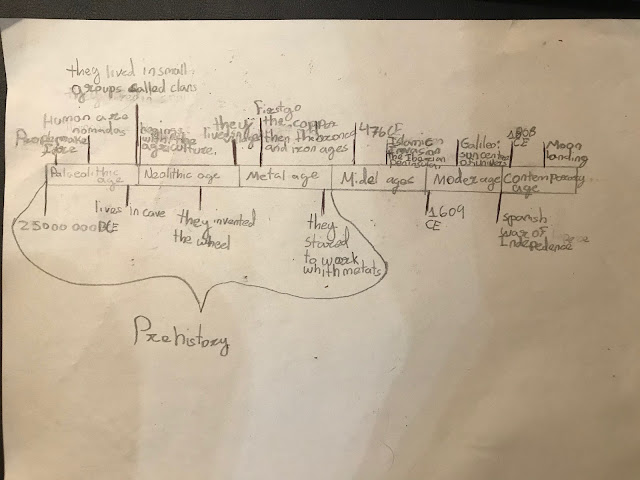 they lived in small
groups called clans
Human are
nomados
People make
fire
begins
with the
agriculture.
they
lived in
First go
the copper
then the bronce
and iron ages
476 CE
Islamic
expansion
the Iberian
peninsula
Galileo:
sun center
of universe
1808
CE
Moon
landing
Palueolithic
age
Neolithic age
Metal age
Midel ages
Moder age
Contemporary
age
25000000BCE
lives in cave
they invented
the wheel
they
stared
to work
whith metals
1609
CE
spanish
war of
Indepedence
Prehistory